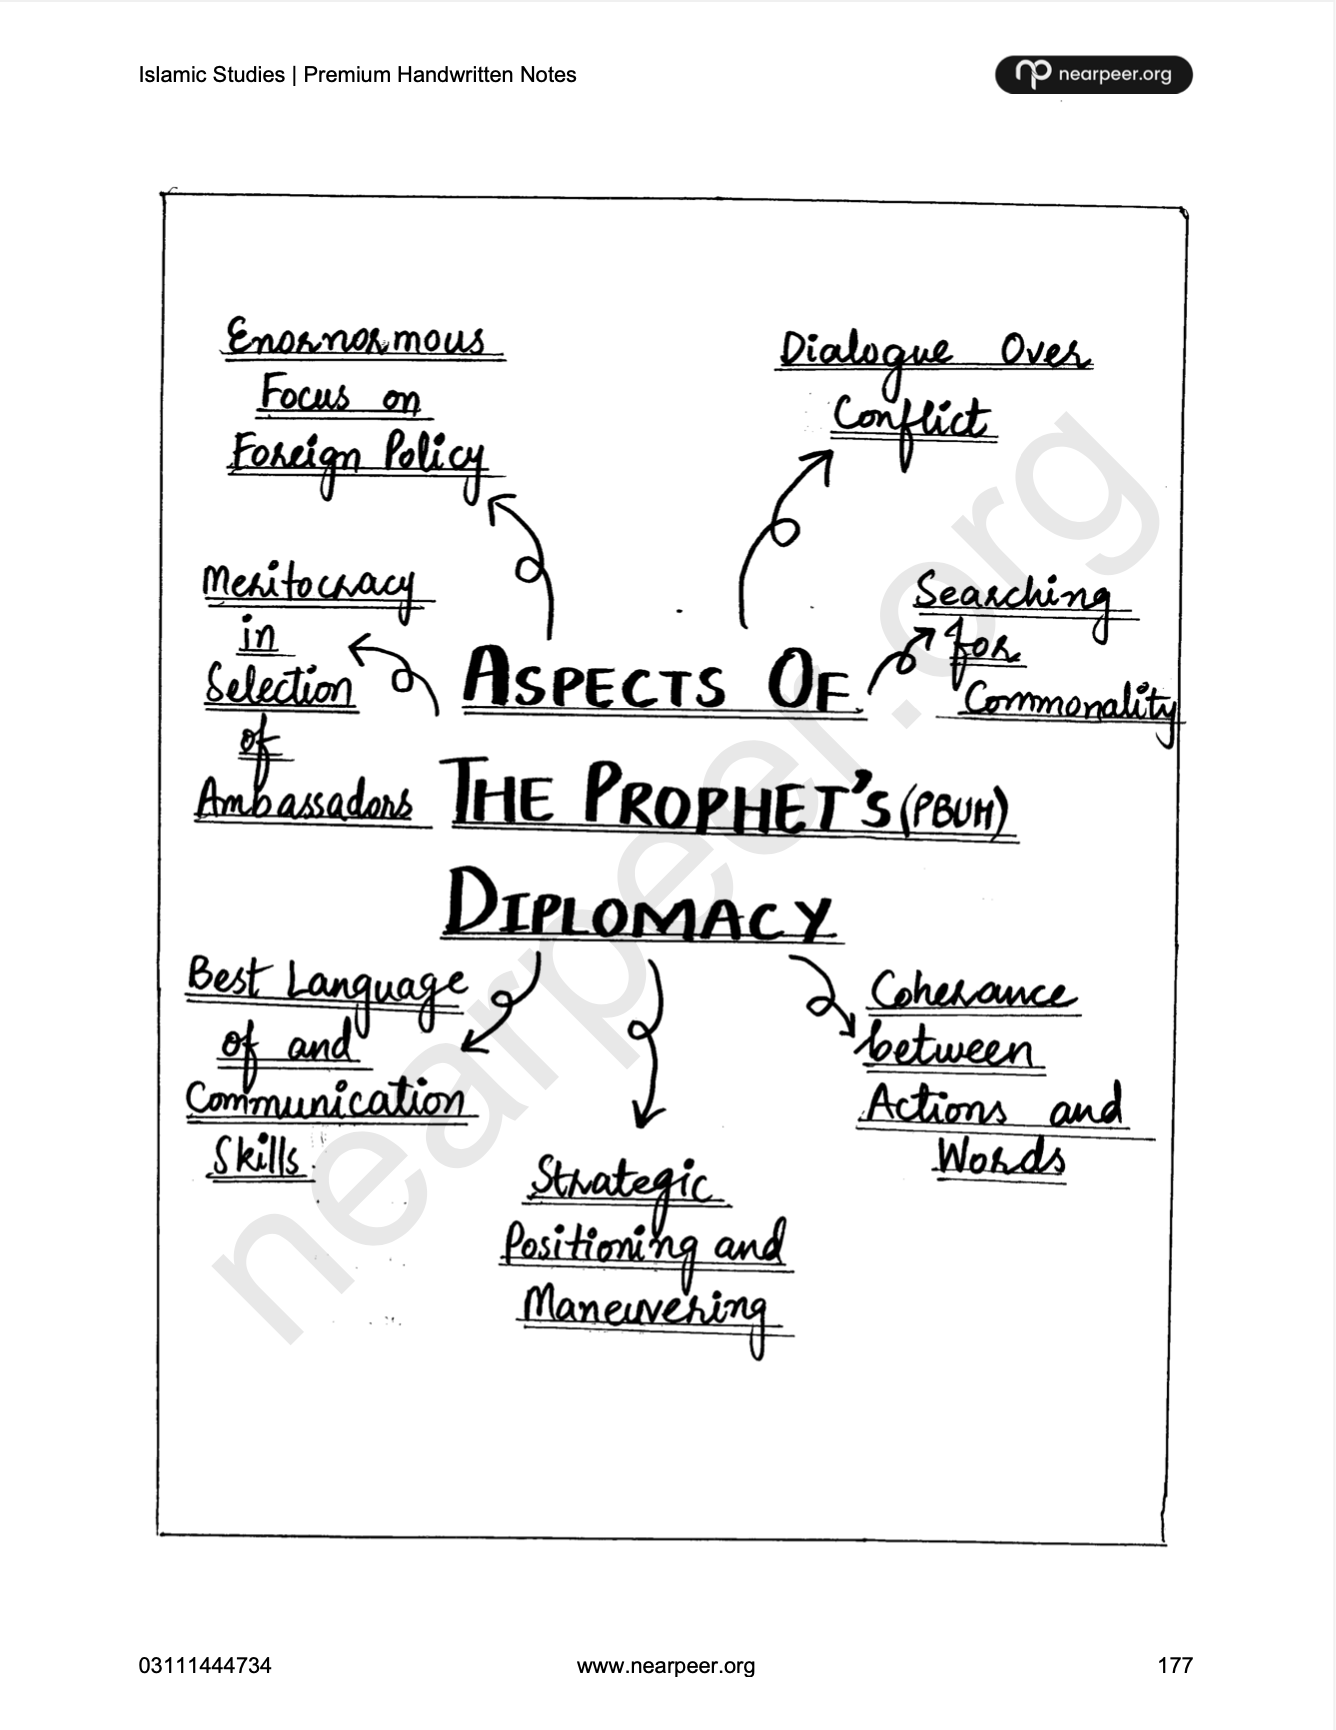 Islamic Studies | Premium Handwritten Notes
nearpeer.org
Enornormous
Focus on
Foreign Policy
Dialogue Over
Conflict
Meritocracy
in
Selection
of
Ambassadors
Searching
for
Commonality
ASPECTS OF
THE PROPHET'S (PBUH)
DIPLOMACY
Best Language
of and
Communication
Skills.
Coherance
between
Actions and
Words
Strategic
Positioning and
Maneuvering
nearpeer.org
03111444734
www.nearpeer.org
177